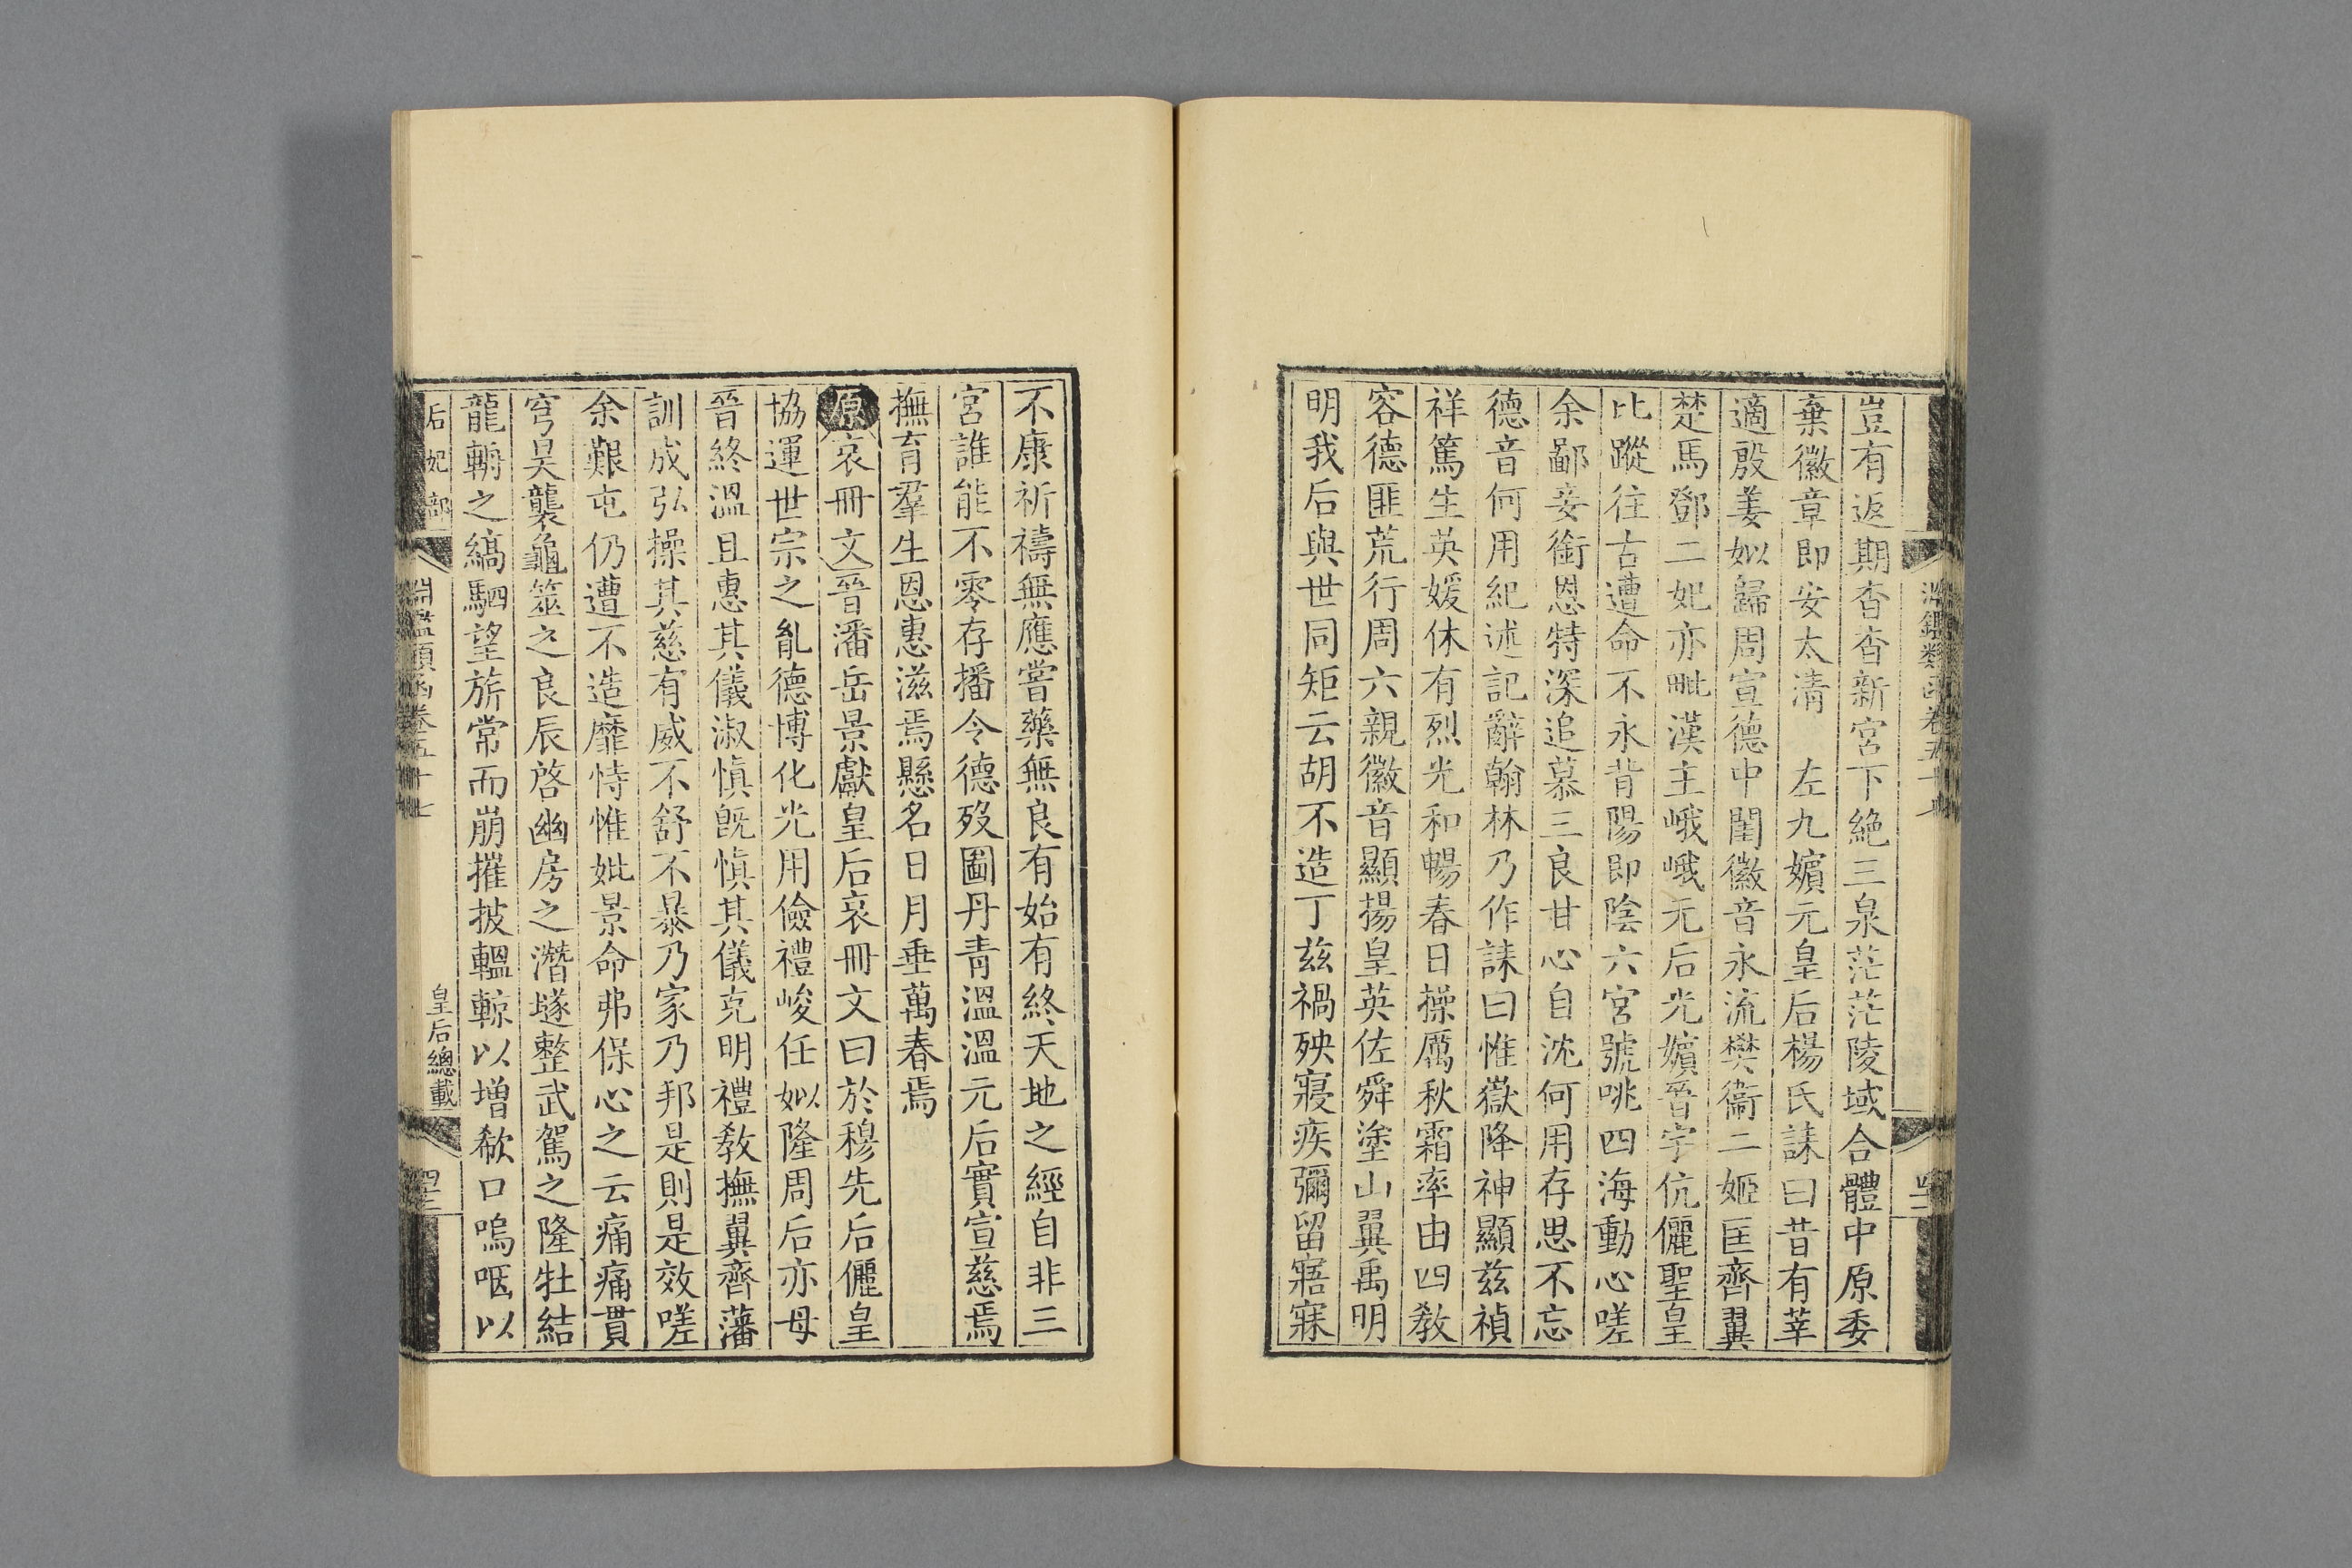 豈有返期杳杳新宮下絶三泉茫茫陵域合體中原委
棄徽章即安太清　左九嬪元皇后楊氏誄曰昔有莘
適殷姜姒歸周宣德中闈徽音永流樊衞二姬匡齊翼
楚馬鄧二妃亦毗漢主峨峨元后光嬪晉宇伉儷聖皇
比蹤往古遭命不永背陽即陰六宮號咷四海動心嗟
余鄙妾銜恩特深追慕三良甘心自沈何用存思不忘
德音何用紀述記辭翰林乃作誄曰惟嶽降神顯兹禎
祥篤生英媛休有烈光和暢春日操厲秋霜率由四敎
容德匪荒行周六親徽音顯揚皇英佐舜塗山翼禹明
明我后與世同矩云胡不造丁兹禍殃寢疾彌留寤寐
不康祈禱無應嘗藥無良有始有終天地之經自非三
宮誰能不零存播令德歿圖丹靑溫溫元后實宣慈焉
撫育羣生恩惠滋焉懸名日月垂萬春焉
原哀冊文晉潘岳景獻皇后哀冊文曰於穆先后儷皇
協運世宗之胤德博化光用儉禮峻任姒隆周后亦母
晉終溫且惠其儀淑愼旣愼其儀克明禮敎撫翼齊藩
訓成弘操其慈有威不舒不暴乃家乃邦是則是效嗟
余艱屯仍遭不造靡恃惟妣景命弗保心之云痛痛貫
穹昊襲龜筮之良辰啓幽房之潛墬整武駕之隆牡結
龍輀之縞駟望旂常而崩摧披轀輬以增欷口嗚咽以
后妃部
淵鑑類函卷五十七
皇后總載